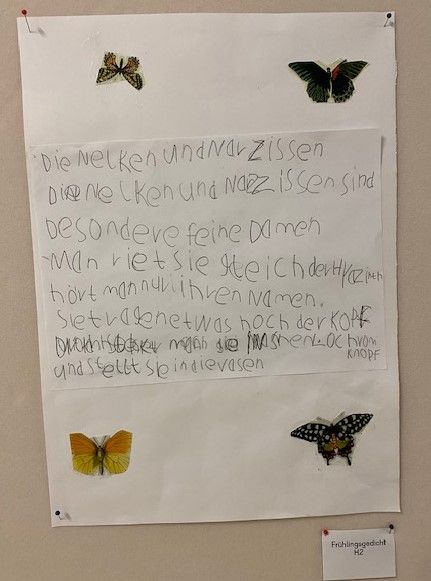 Die Nelken und Narzissen
Die Nelken und Narzissen sind
besondere feine Damen
Man riet sie gleich der Hyazinth
hört man nur ihren Namen.
Sie tragen etwas hoch der KOPF
man sie INS Loch vom
KNOPF
und stellt sie in die vasen
Frühlingsgedicht
H2